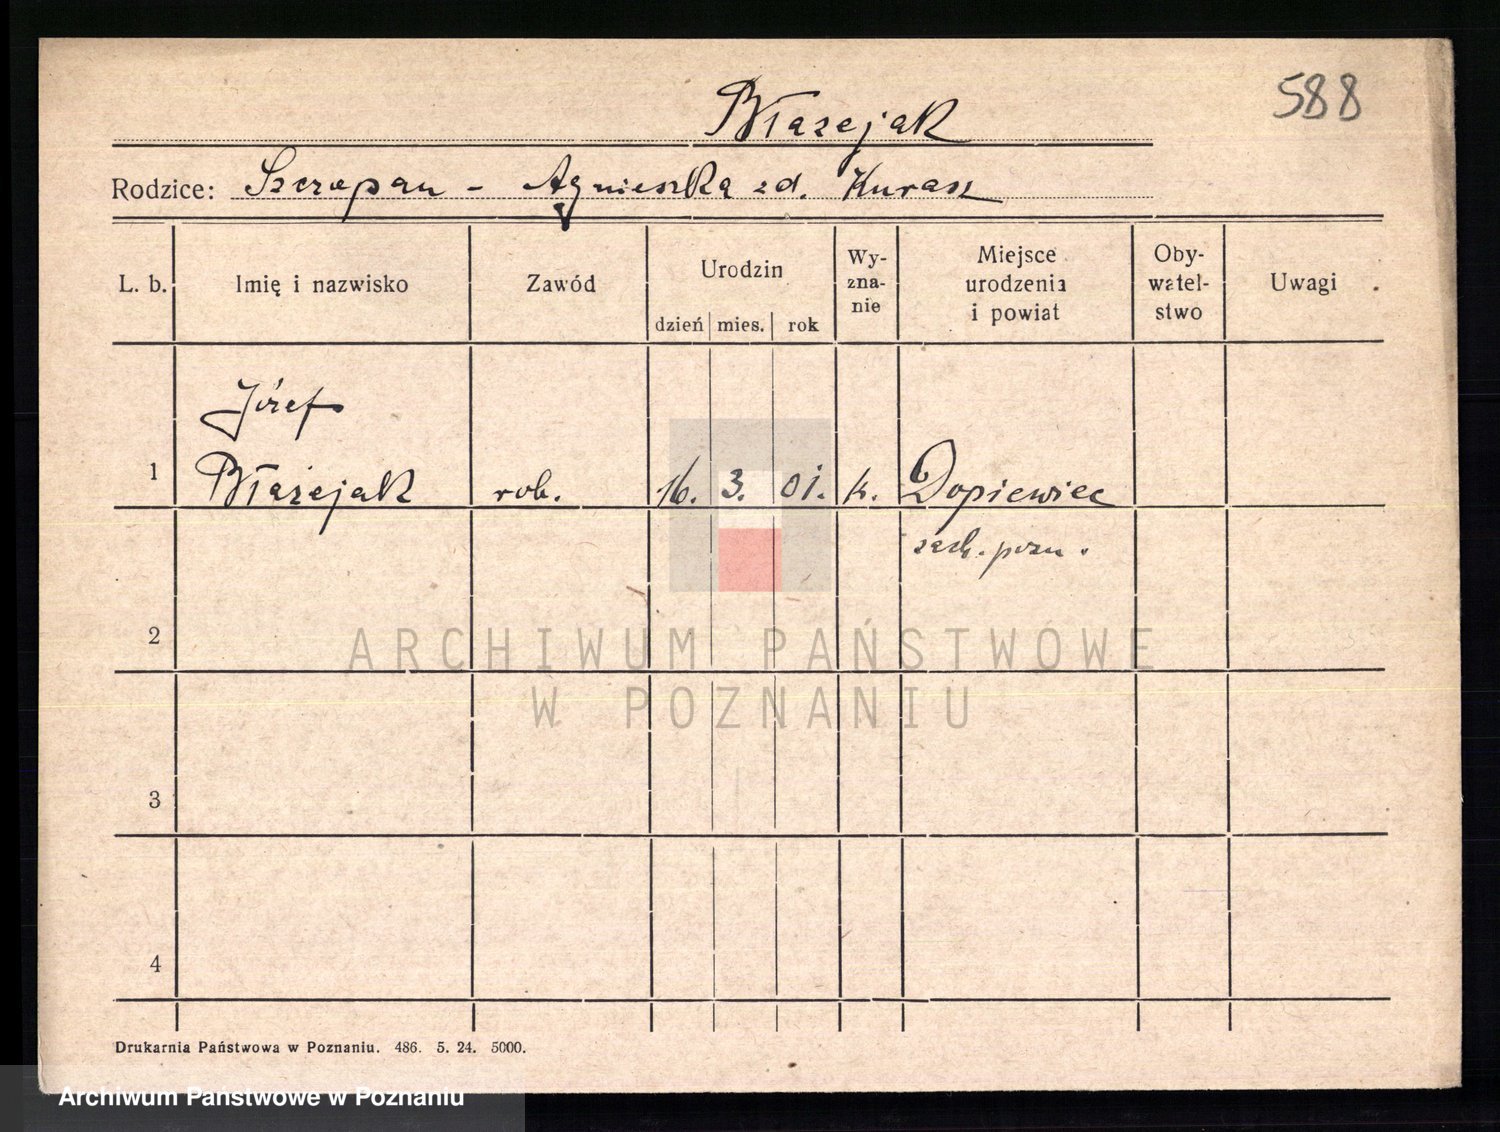 588
Błażejak
Rodzice: Szczepan - Agnieszka zd. Kurasz
L. b.
Imię i nazwisko
Zawód
Urodzin
dzień mies. rok
Wy-
zna-
nie
Miejsce
urodzenia
i powiat
Oby-
watel-
stwo
Uwagi
Józef
1 Błażejak rob. 16. 3. 01. k. Dopiewiec
zach. pozn.
2
3
4
Drukarnia Państwowa w Poznaniu. 486. 5. 24. 5000.
ARCHIWUM PAŃSTWOWE
W POZNANIU
Archiwum Państwowe w Poznaniu